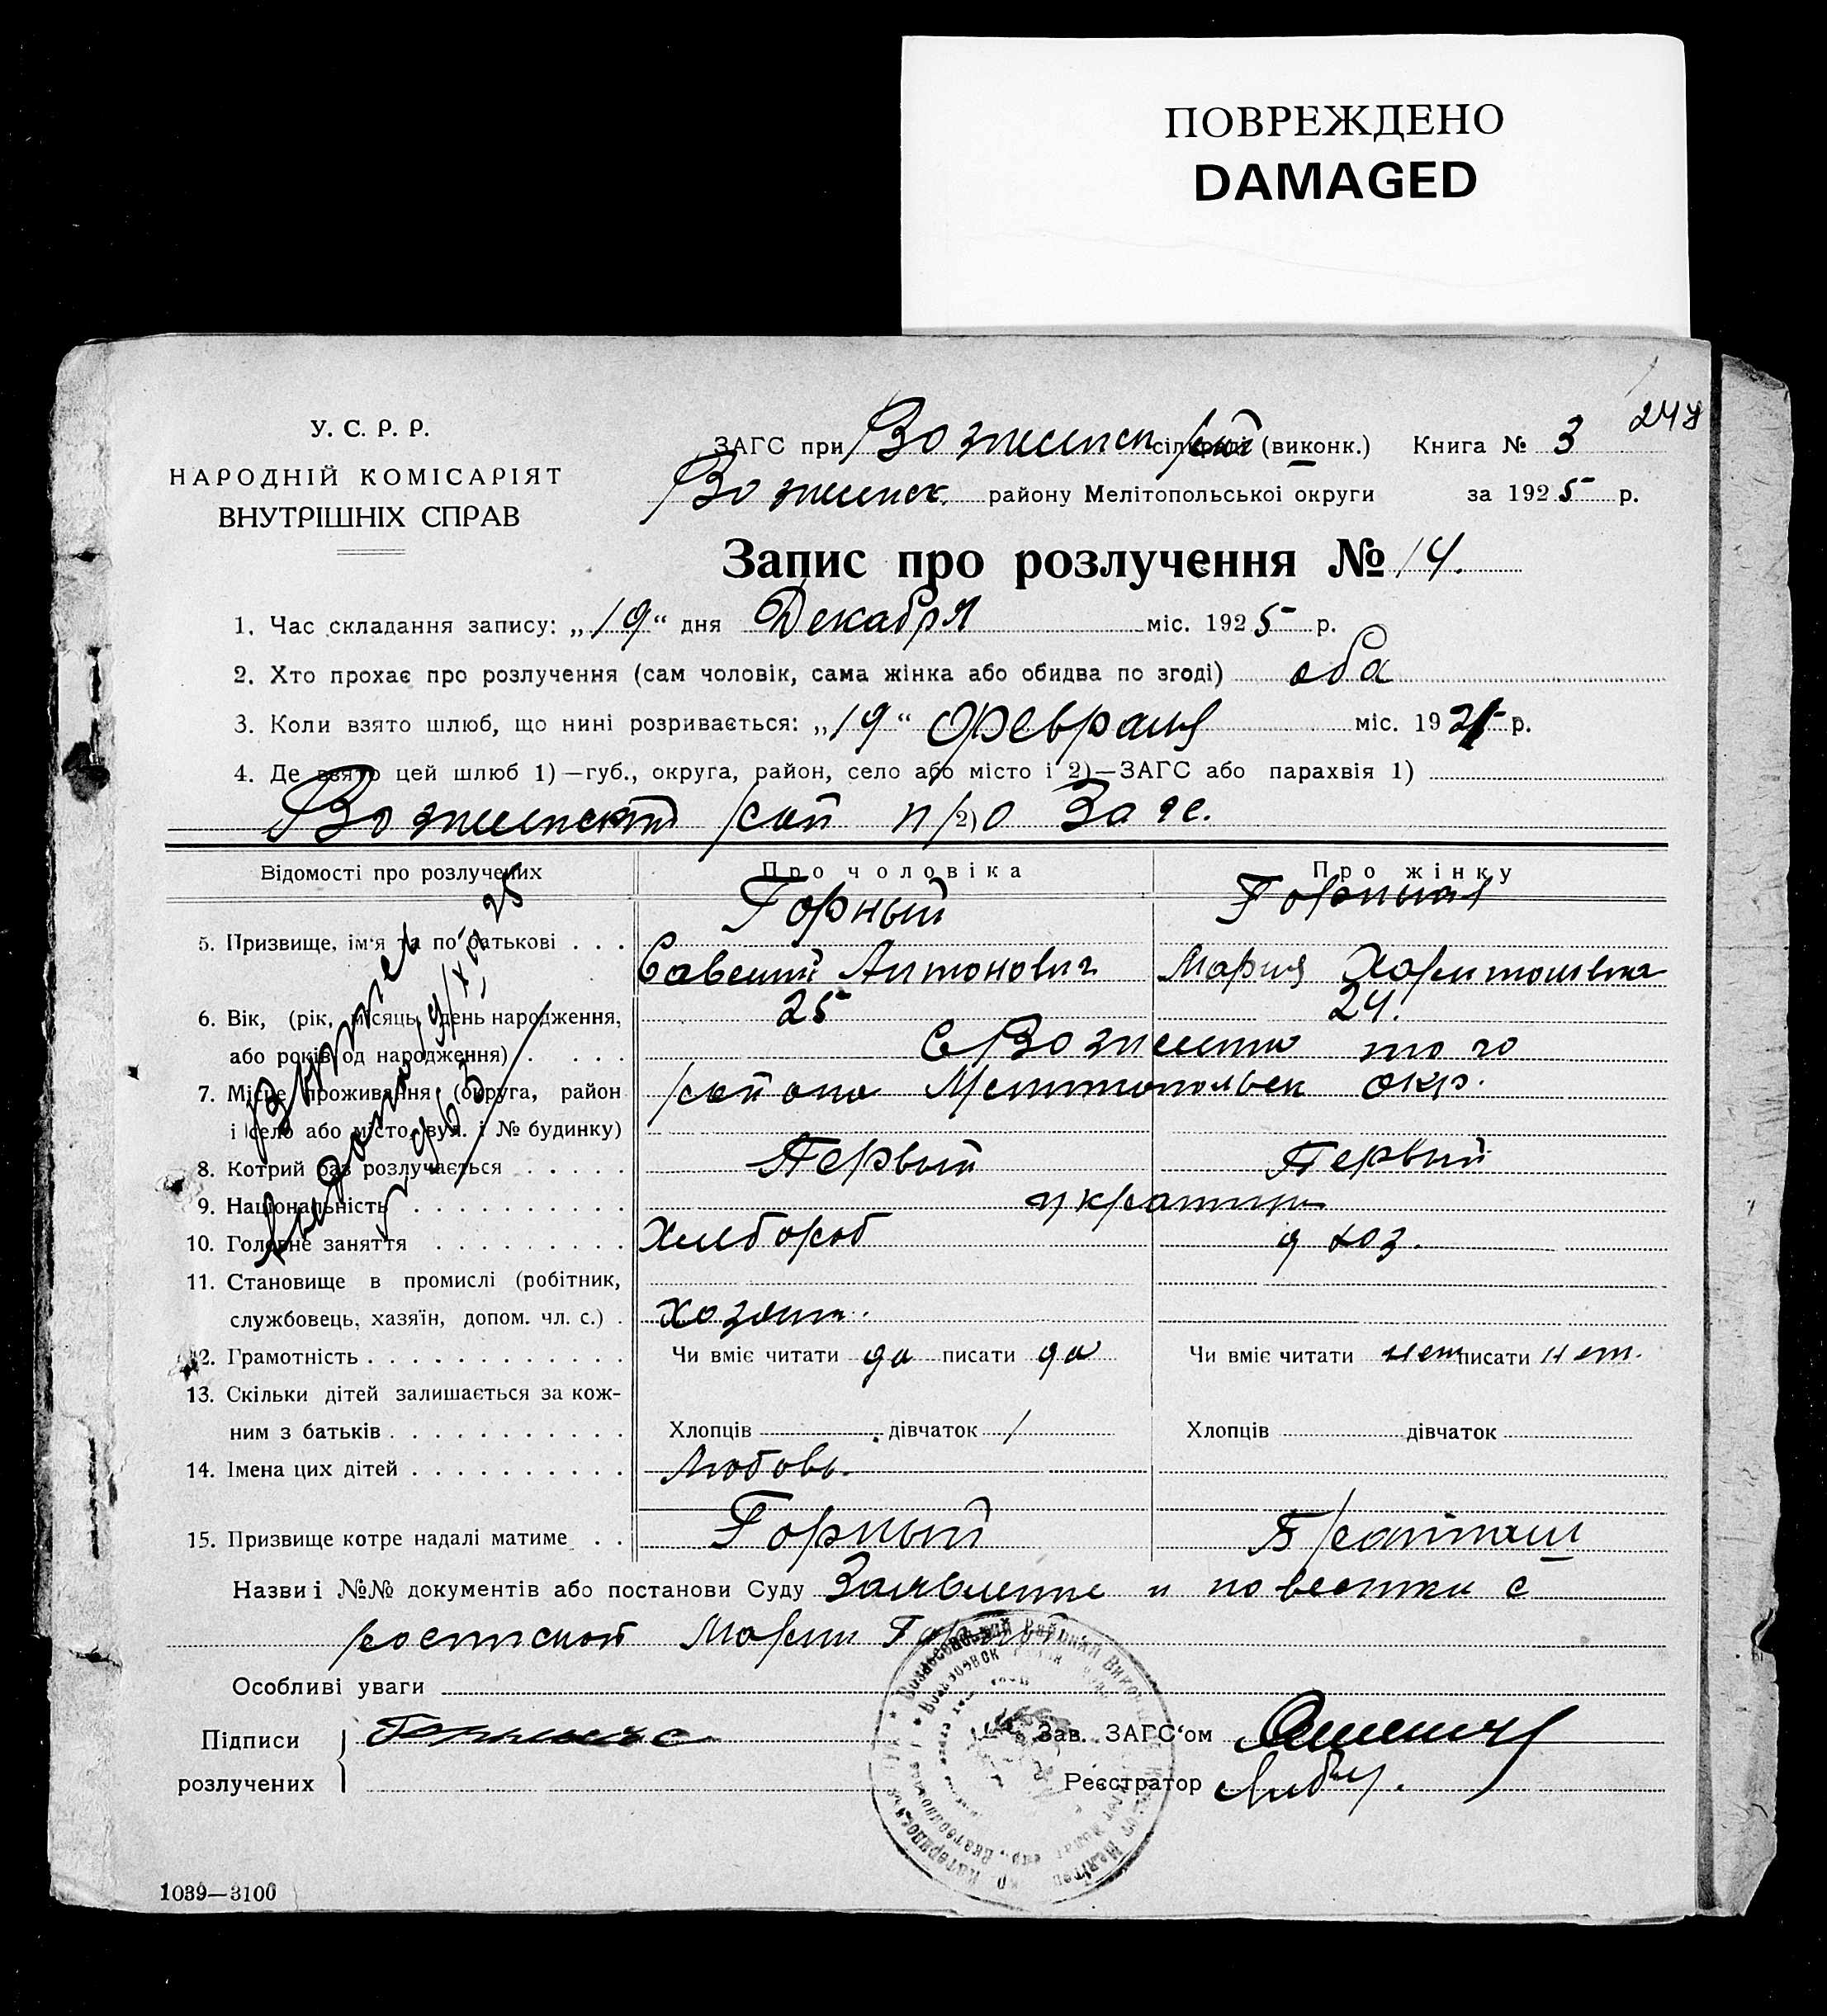 ПОВРЕЖДЕНО
DAMAGED
248
У. С. Р. Р.
НАРОДНІЙ КОМІСАРІЯТ
ВНУТРІШНІХ СПРАВ
ЗАГС при сільраді (виконк.) Книга № 3
району Мелітопольської округи за 1925 р.
Запис про розлучення № 14.
1. Час складання запису: „19“ дня Декабря міс. 1925 р.
2. Хто прохає про розлучення (сам чоловік, сама жінка або обидва по згоді) оба
3. Коли взято шлюб, що нині розривається: „19“ Февраля міс. 192 р.
4. Де взято цей шлюб 1)—губ., округа, район, село або місто і 2)—ЗАГС або парахвія 1)
2) Загс.
Відомості про розлучених Про чоловіка Про жінку
Горный Горная
5. Призвище, ім‘я та по батькові . . .
Савелий Антонович Мария Харитоновна
6. Вік, (рік, місяць, день народження, 25 24.
або років од народження) . . . .
7. Місце проживання (округа, район района Мелитопольск окр.
і село або місто, вул. і № будинку)
8. Котрий раз розлучається . . . . . Первый Первый
9. Національність . . . . . . . . . . украинцы
10. Головне заняття . . . . . . . . . Хлебороб д хоз.
11. Становище в промислі (робітник,
службовець, хазяїн, допом. чл. с.) . хозяин.
12. Грамотність . . . . . . . . . . . . Чи вміє читати да писати да Чи вміє читати нет писати нет.
13. Скільки дітей залишається за кож-
ним з батьків . . . . . . . . . . . Хлопців дівчаток 1 Хлопців дівчаток
14. Імена цих дітей . . . . . . . . . . Любовь.
15. Призвище котре надалі матиме . . Горный
Назви і №№ документів або постанови Суду Заявление и повестка с
роспиской Марии Горной
Особливі уваги
Підписи Зав. ЗАГС‘ом
розлучених Реєстратор
1039—3100